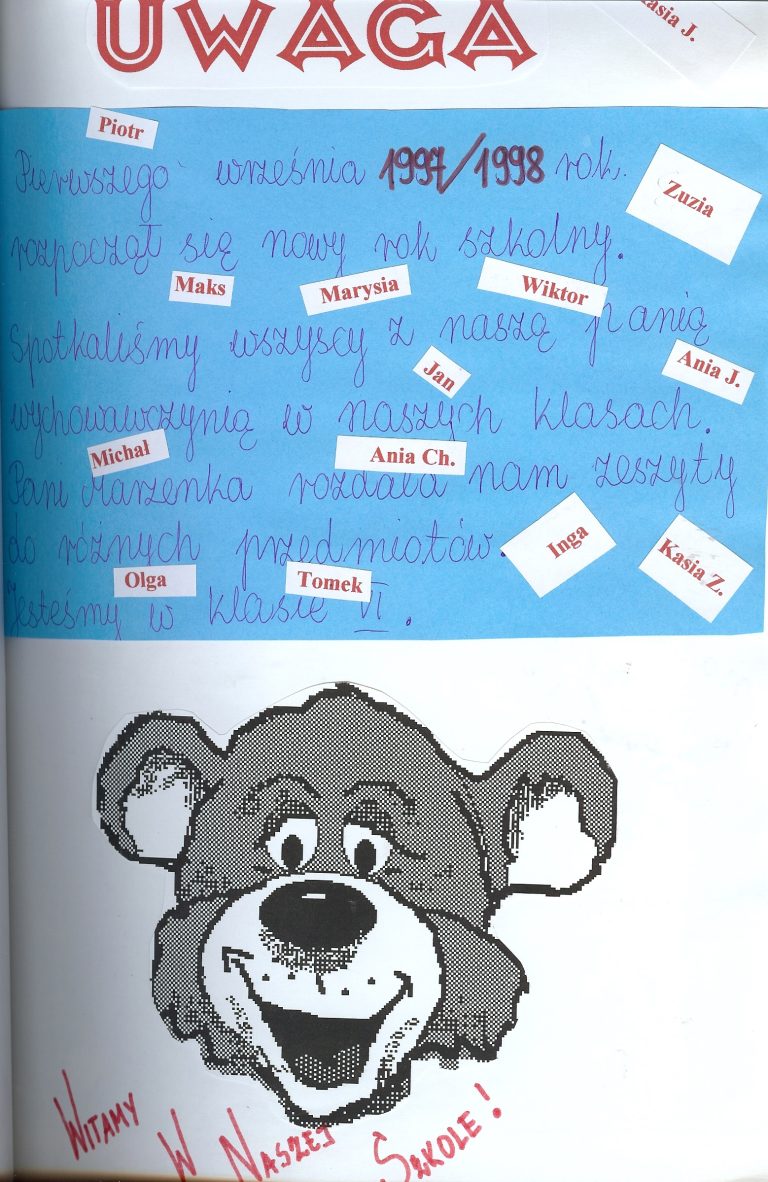 UWAGA
Kasia J.
Piotr
Pierwszego września 1997/1998 rok.
Zuzia
rozpoczął się nowy rok szkolny.
Maks Marysia Wiktor
Spotkaliśmy wszyscy z naszą panią
Jan Ania J.
wychowawczynią w naszych klasach.
Michał Ania Ch.
Pani Marzenka rozdała nam zeszyty
do różnych przedmiotów.
Inga Kasia Z.
Olga Tomek
Jesteśmy w klasie VI.
WITAMY W NASZEJ SZKOLE!